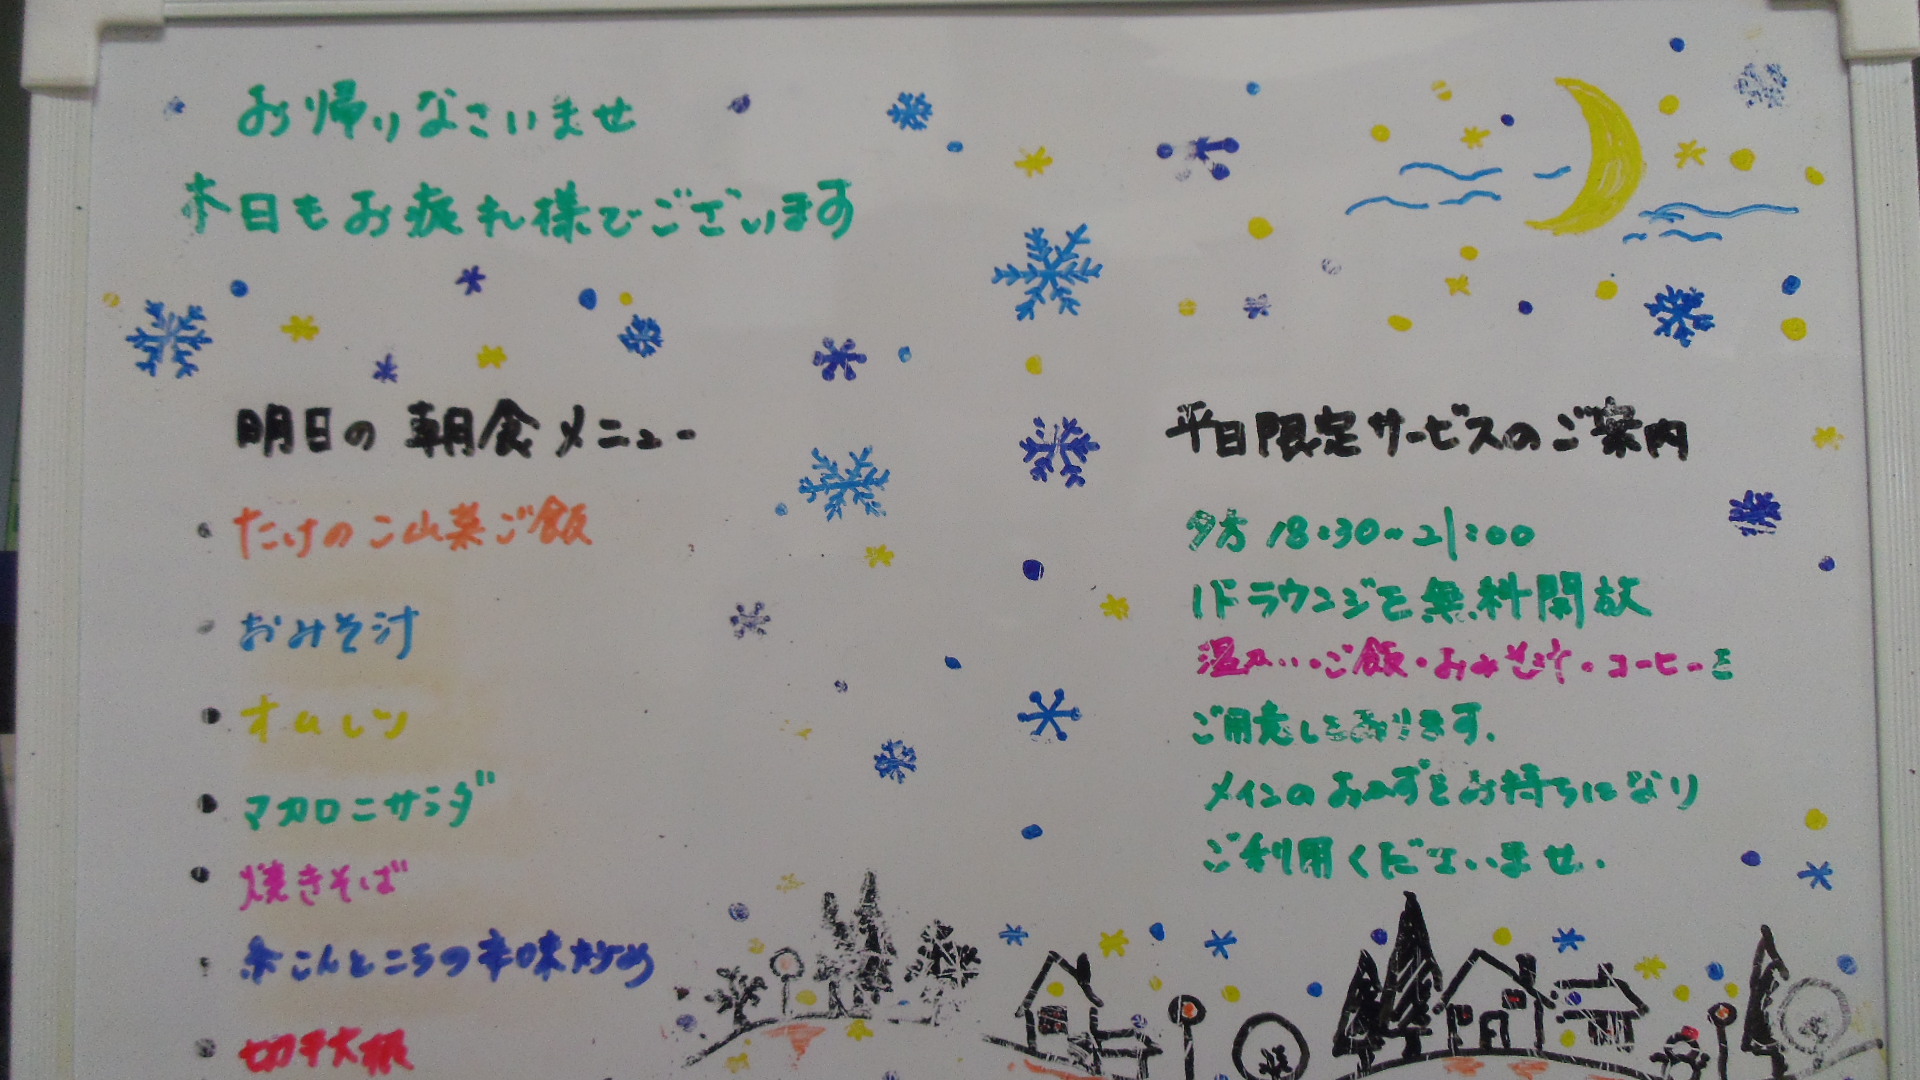 お帰りなさいませ
本日もお疲れ様でございます
明日の朝食メニュー
・たけのこ山菜ご飯
・おみそ汁
・オムレツ
・マカロニサラダ
・焼きそば
・糸こんところの辛味炒め
・切干大根
平日限定サービスのご案内
夕方 18:30~21:00
1Fラウンジを無料開放
温かい・ご飯・おみそ汁・コーヒーを
ご用意しております.
メインのおかずをお持ちになり
ご利用くださいませ.